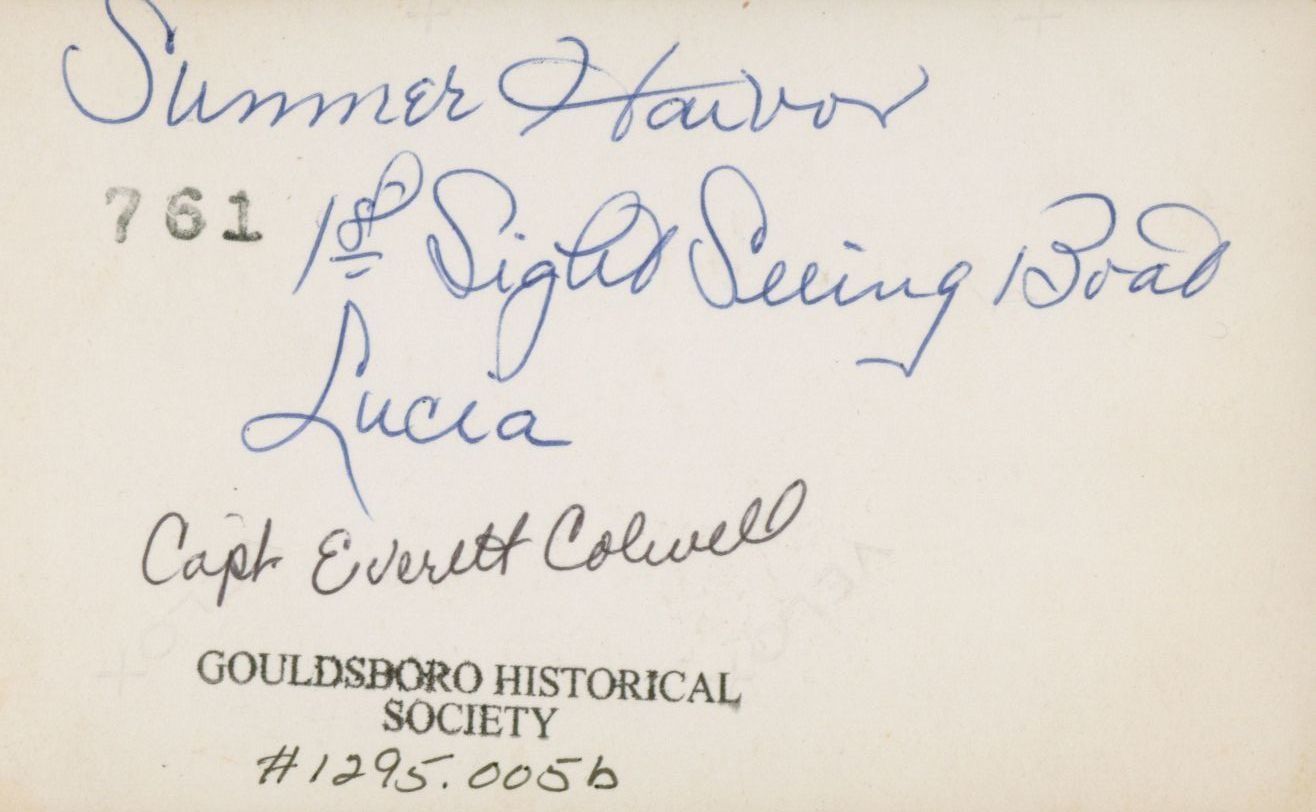 Summer Harbor
761 1st Sight Seeing Boat
Lucia
Capt Everett Colwell
GOULDSBORO HISTORICAL
SOCIETY
#1295.005b